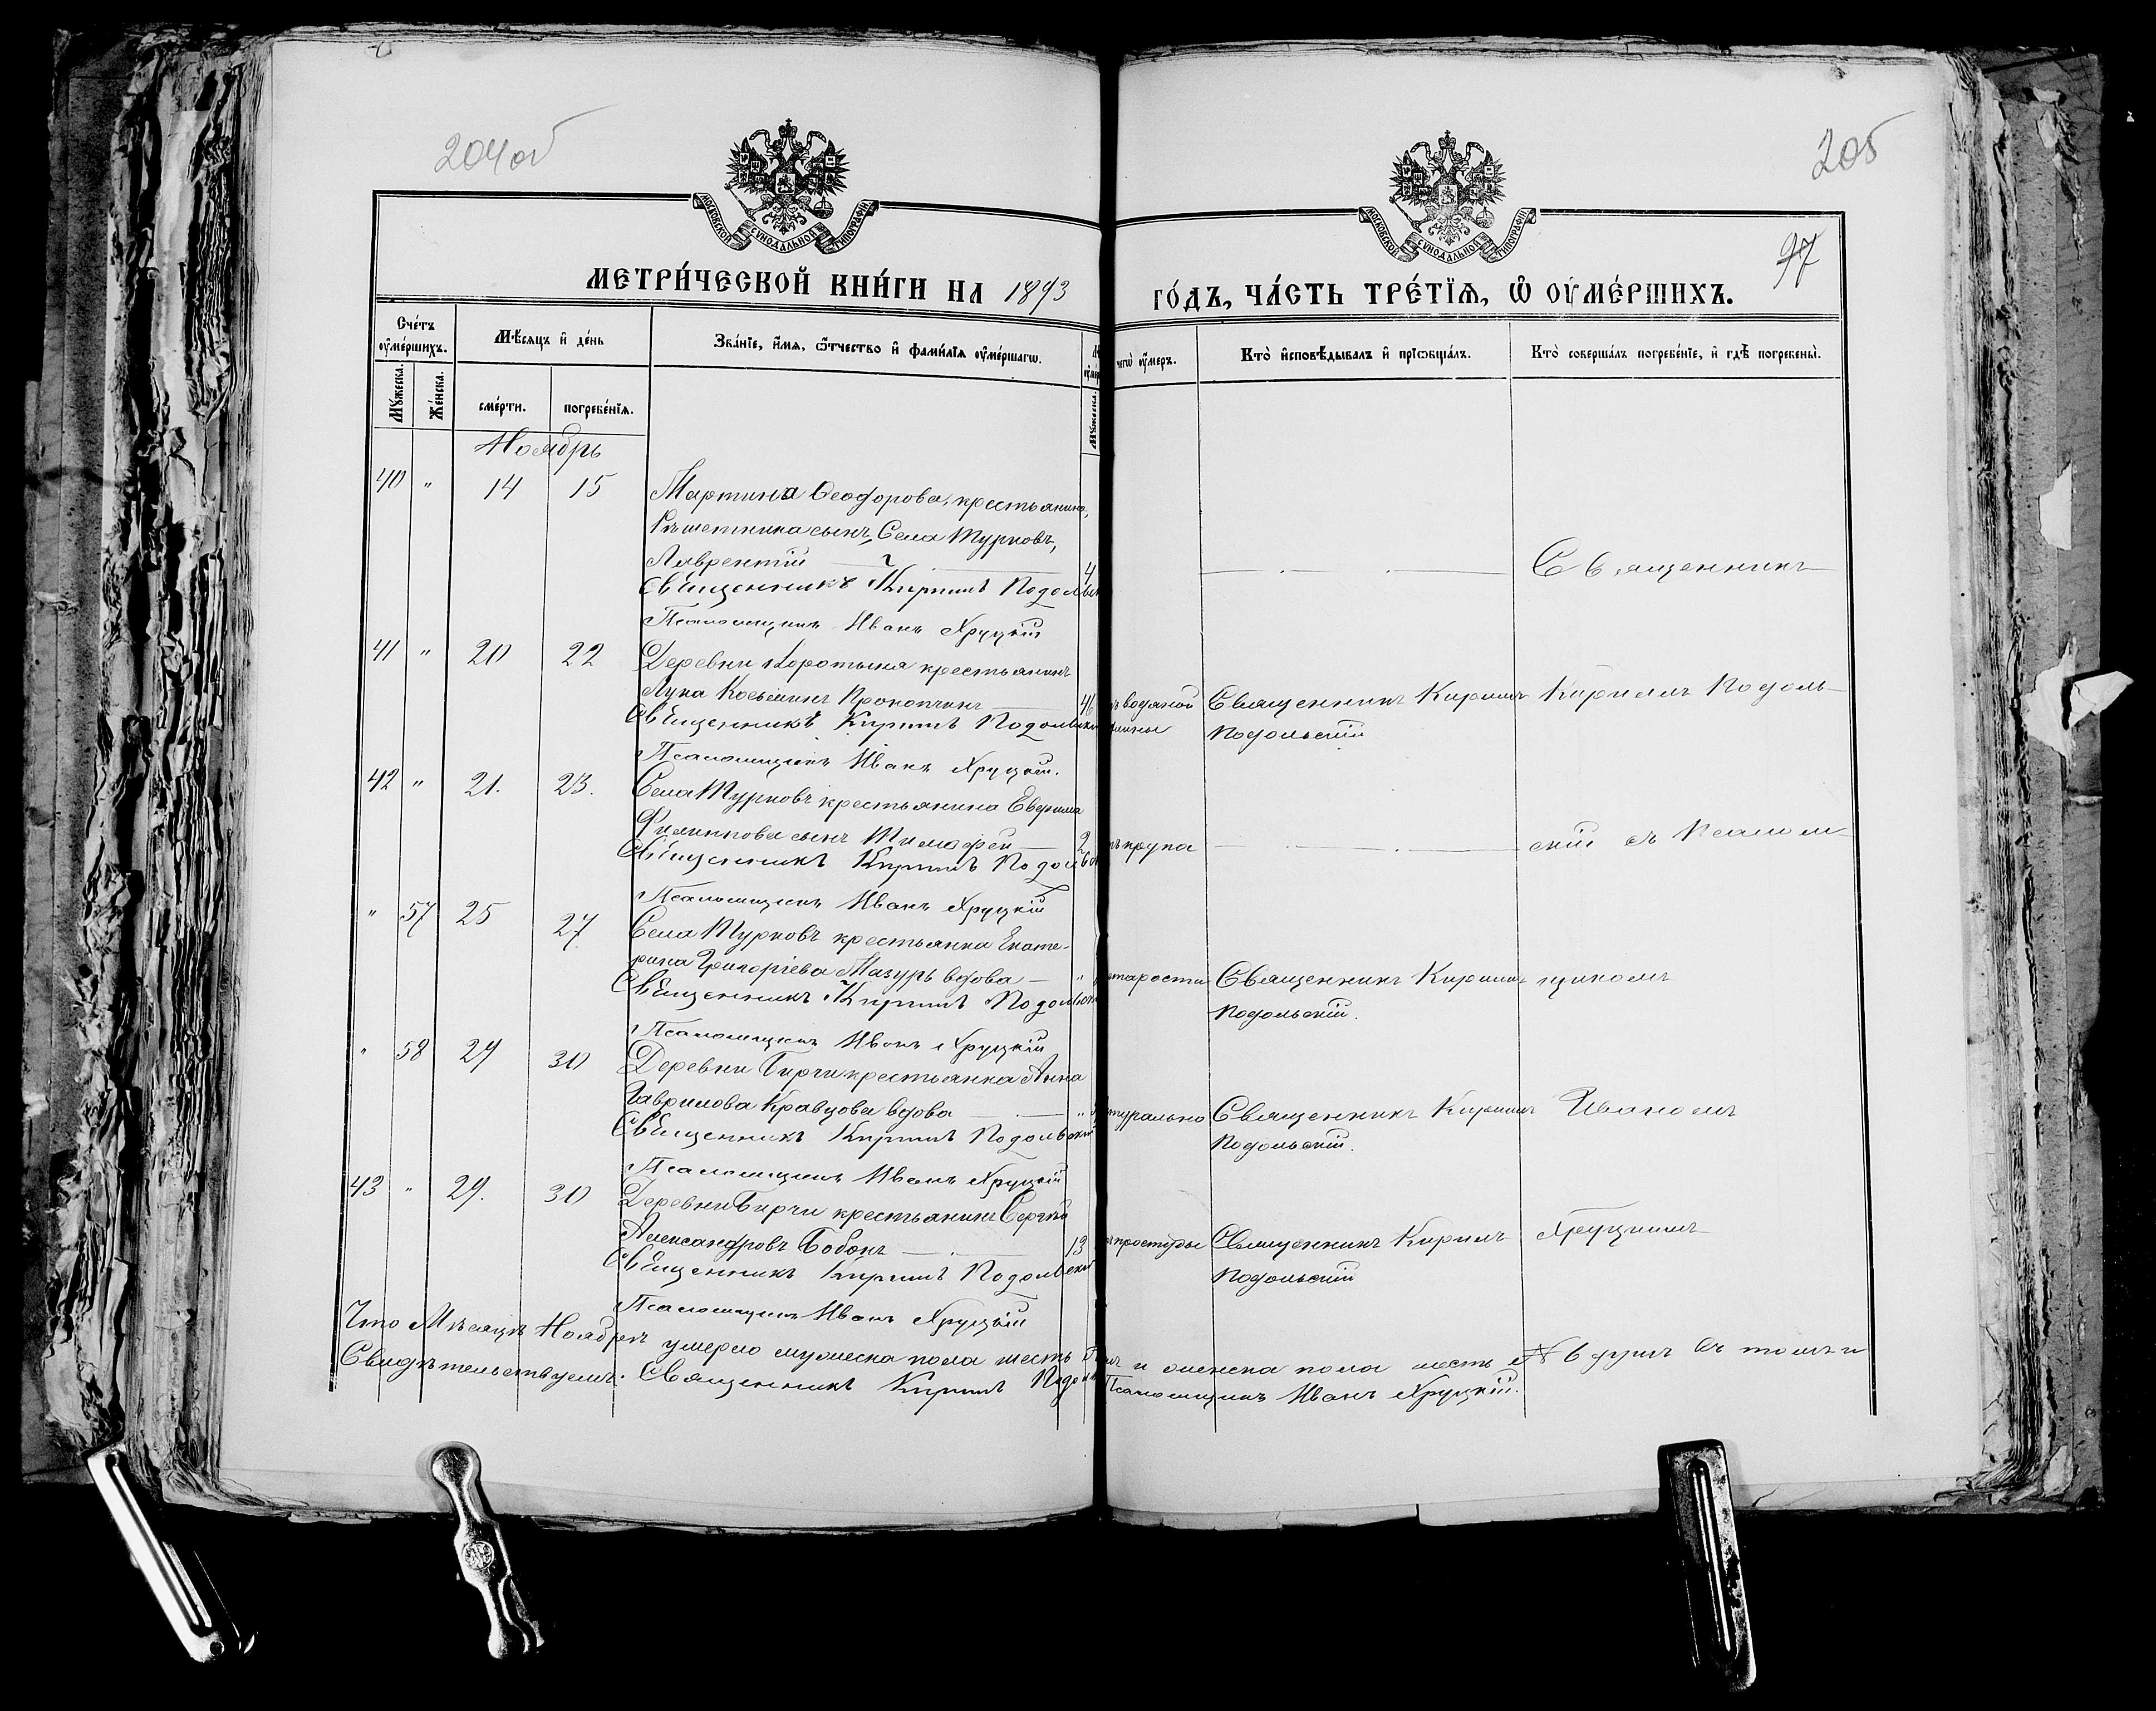 204об
205
97
МОСКОВСКОЙ СѴНОДАЛЬНОЙ ТИПОГРАФІИ
МОСКОВСКОЙ СѴНОДАЛЬНОЙ ТИПОГРАФІИ
МЕТРИ́ЧЕСКОЙ КНИ́ГИ НА 1893 ГО́ДЪ, ЧА́СТЬ ТРЕ́ТІѦ, Ѡ҆ ОУ҆МЕ́РШИХЪ.
Сче́тъ оу҆ме́ршихъ.
Мѣ́сяцъ и҆ де́нь
Зва́нїе, и҆́мя, ѻ҆́тчество и҆ фами́лїя оу҆ме́ршагѡ.
чегѡ̀ оу҆́меръ.
Кто̀ и҆сповѣ́дывалъ и҆ прїѡбща́лъ.
Кто̀ соверша́лъ погребе́нїе, и҆ гдѣ̀ погребены̀.
Му́жеска.
Же́нска.
сме́рти.
погребе́нїя.
Му́жеска.
Ноябрь
40 " 14 15 Мартина Ѳеодорова, крестьянина,
Рѣшетника сынъ, Села Турковъ,
Лаврентій 4 Священникъ
Священникъ Кириллъ Подольск
Псаломщикъ Иванъ Хруцкій
41 " 20 22 Деревни Коротыня крестьянинъ
Лука Косьминъ Прокопчикъ 46 водяной Священникъ Кириллъ Кирилл Подоль-
Священникъ Кириллъ Подольскій Подольскій
Псаломщикъ Иванъ Хруцкій.
42 " 21. 23. Села Турковъ крестьянина Евфима
Филиппова сынъ Тимофей 2 крупа скій съ Псалом-
Священникъ Кириллъ Подольск
Псаломщикъ Иванъ Хруцкій
" 57 25 27 Села Турковъ крестьянка Екате-
рина Григоріева Мазурь вдова " старости Священникъ Кириллъ щикомъ
Священникъ Кириллъ Подольск Подольскій.
Псаломщикъ Иванъ Хруцкій
" 58 29 30 Деревни Бирчи крестьянка Анна
Гаврилова Кравцова вдова " турально Священникъ Кириллъ Иваномъ
Священникъ Кириллъ Подольскій Подольскій.
Псаломщикъ Иванъ Хруцкій
43 " 29. 30 Деревни Бирчи крестьянинъ Сергѣй
Александровъ Бобокъ 13 простуды Священникъ Кириллъ Хруцкимъ
Священникъ Кириллъ Подольскій Подольскій
Псаломщикъ Иванъ Хруцкій
Что Мѣсяцѣ Ноябрѣ умерло мужеска пола шесть и женска пола шесть душъ въ томъ и
Свидѣтельствуемъ: Священникъ Кириллъ Подол Псаломщикъ Иванъ Хруцкій.